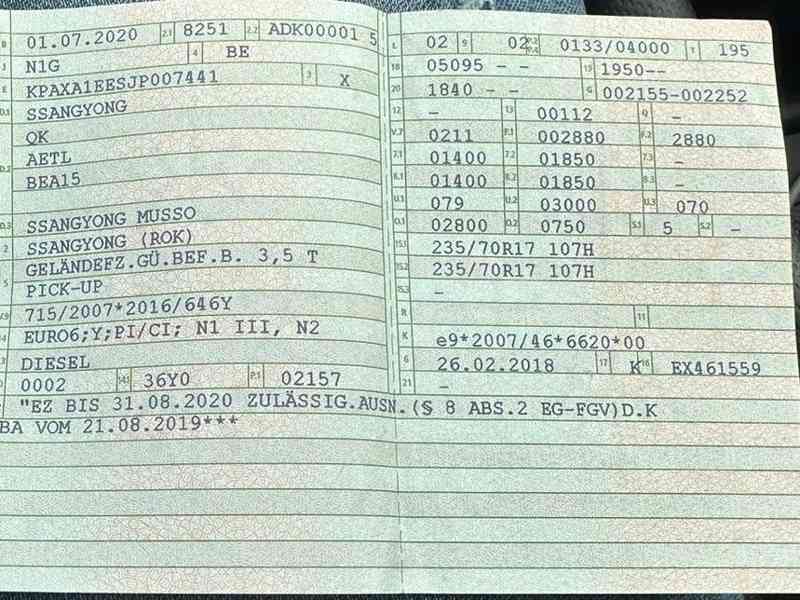 B 01.07.2020 2.1 8251 2.2 ADK00001 5
J N1G 4 BE
E KPAXA1EESJP007441 3 X
D.1 SSANGYONG
QK
D.2 AETL
BEA15
D.3 SSANGYONG MUSSO
2 SSANGYONG (ROK)
5 GELÄNDEFZ.GÜ.BEF.B. 3,5 T
PICK-UP
V.9 715/2007*2016/646Y
14 EURO6;Y;PI/CI; N1 III, N2
P.3 DIESEL
0002 14.1 36Y0 P.1 02157
L 02 9 02 P.2 P.4 0133/04000 T 195
18 05095 - - 19 1950--
20 1840 - - G 002155-002252
12 - 13 00112 Q -
V.7 0211 F.1 002880 F.2 2880
7.1 01400 7.2 01850 7.3 -
8.1 01400 8.2 01850 8.3 -
U.1 079 U.2 03000 U.3 070
O.1 02800 O.2 0750 S.1 5 S.2 -
15.1 235/70R17 107H
15.2 235/70R17 107H
15.3 -
R 11
K e9*2007/46*6620*00
6 26.02.2018 17 K 16 EX461559
21 -
"EZ BIS 31.08.2020 ZULÄSSIG.AUSN.(§ 8 ABS.2 EG-FGV)D.K
BA VOM 21.08.2019***